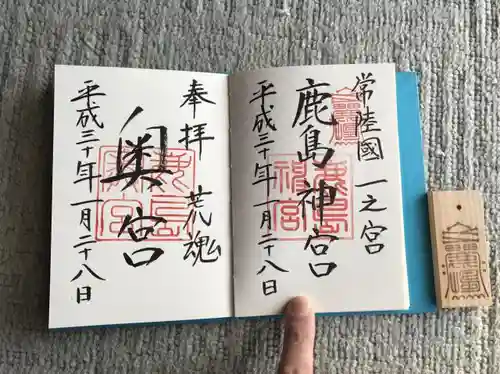 常陸國一之宮
鹿島神宮
平成三十年一月二十八日
奉拝 荒魂
奥宮
平成三十年一月二十八日
鹿島神宮